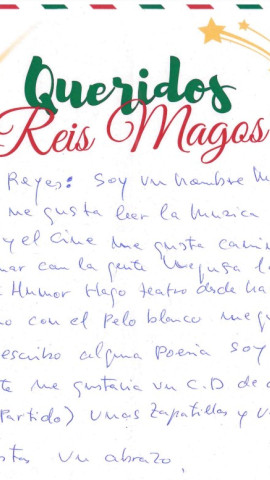 Queridos
Reis Magos
Reyes: Soy un hombre
me gusta leer la muzica
y el Cine me gusta
con la gente
Humor Hago teatro desde ha
con el pelo blanco
escribo alguna Poesia Soy
te me gustaria un C.D de
Partido) unas zapatillas y
un abrazo.